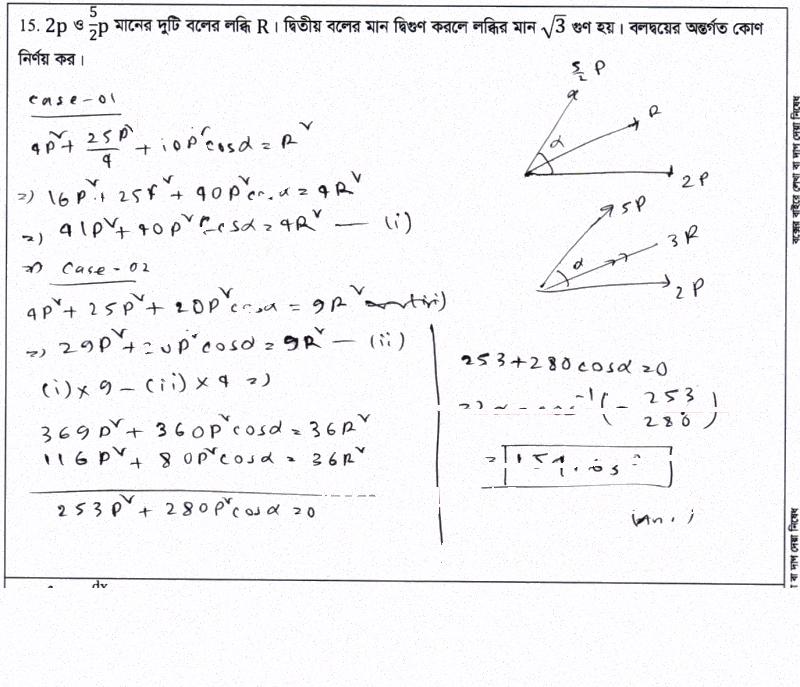 15. 2p ও 5/2 p মানের দুটি বলের লব্ধি R । দ্বিতীয় বলের মান দ্বিগুণ করলে লব্ধির মান √3 গুণ হয় । বলদ্বয়ের অন্তর্গত কোণ
নির্ণয় কর ।
case-01
4p² + 25p²/4 + 10p²cosα = R²
⇒) 16p² + 25p² + 40p²cosα = 4R²
⇒) 41p² + 40p²cosα = 4R² — (i)
Case-02
4p² + 25p² + 20p²cosα = 9R²
⇒) 29p² + 20p²cosα = 9R² — (ii)
(i)×9 – (ii)×4 ⇒)
369p² + 360p²cosα = 36R²
116p² + 80p²cosα = 36R²
253p² + 280p²cosα = 0
5/2 P
α
R
2P
5P
3R
α
2P
253 + 280cosα = 0
(– 253/280)
(Ans.)
বক্সের বাইরে লেখা বা দাগ দেয়া নিষেধ
বা দাগ দেয়া নিষেধ
dy